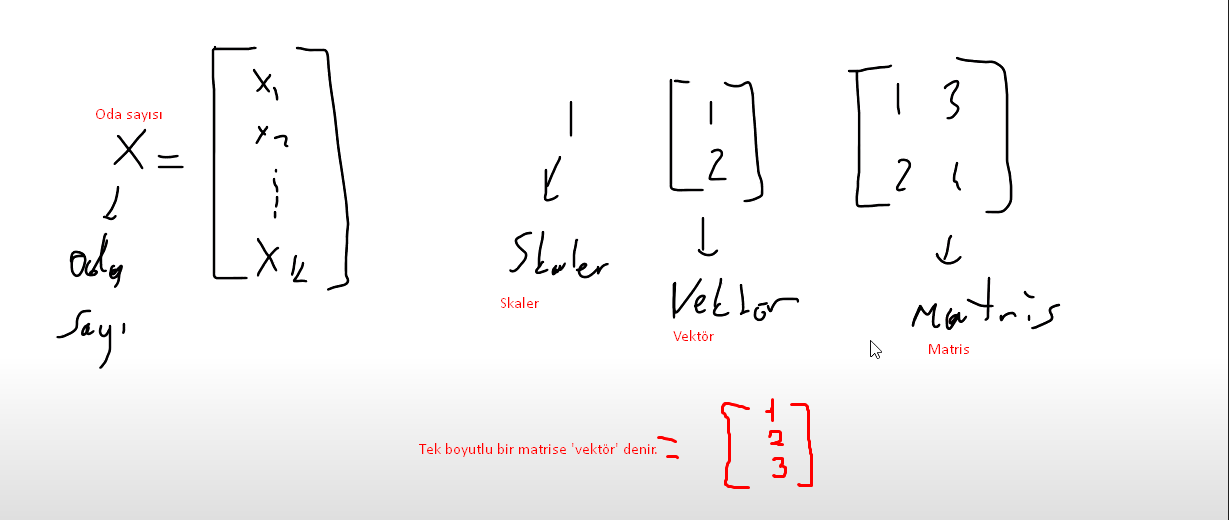 Oda sayısı
X =
x₁
x₂
⋮
Xₖ
Oda
Sayı
1
Skaler
Skaler
1
2
Vektör
Vektör
1 3
2 4
Matris
Matris
Tek boyutlu bir matrise 'vektör' denir. =
1
2
3